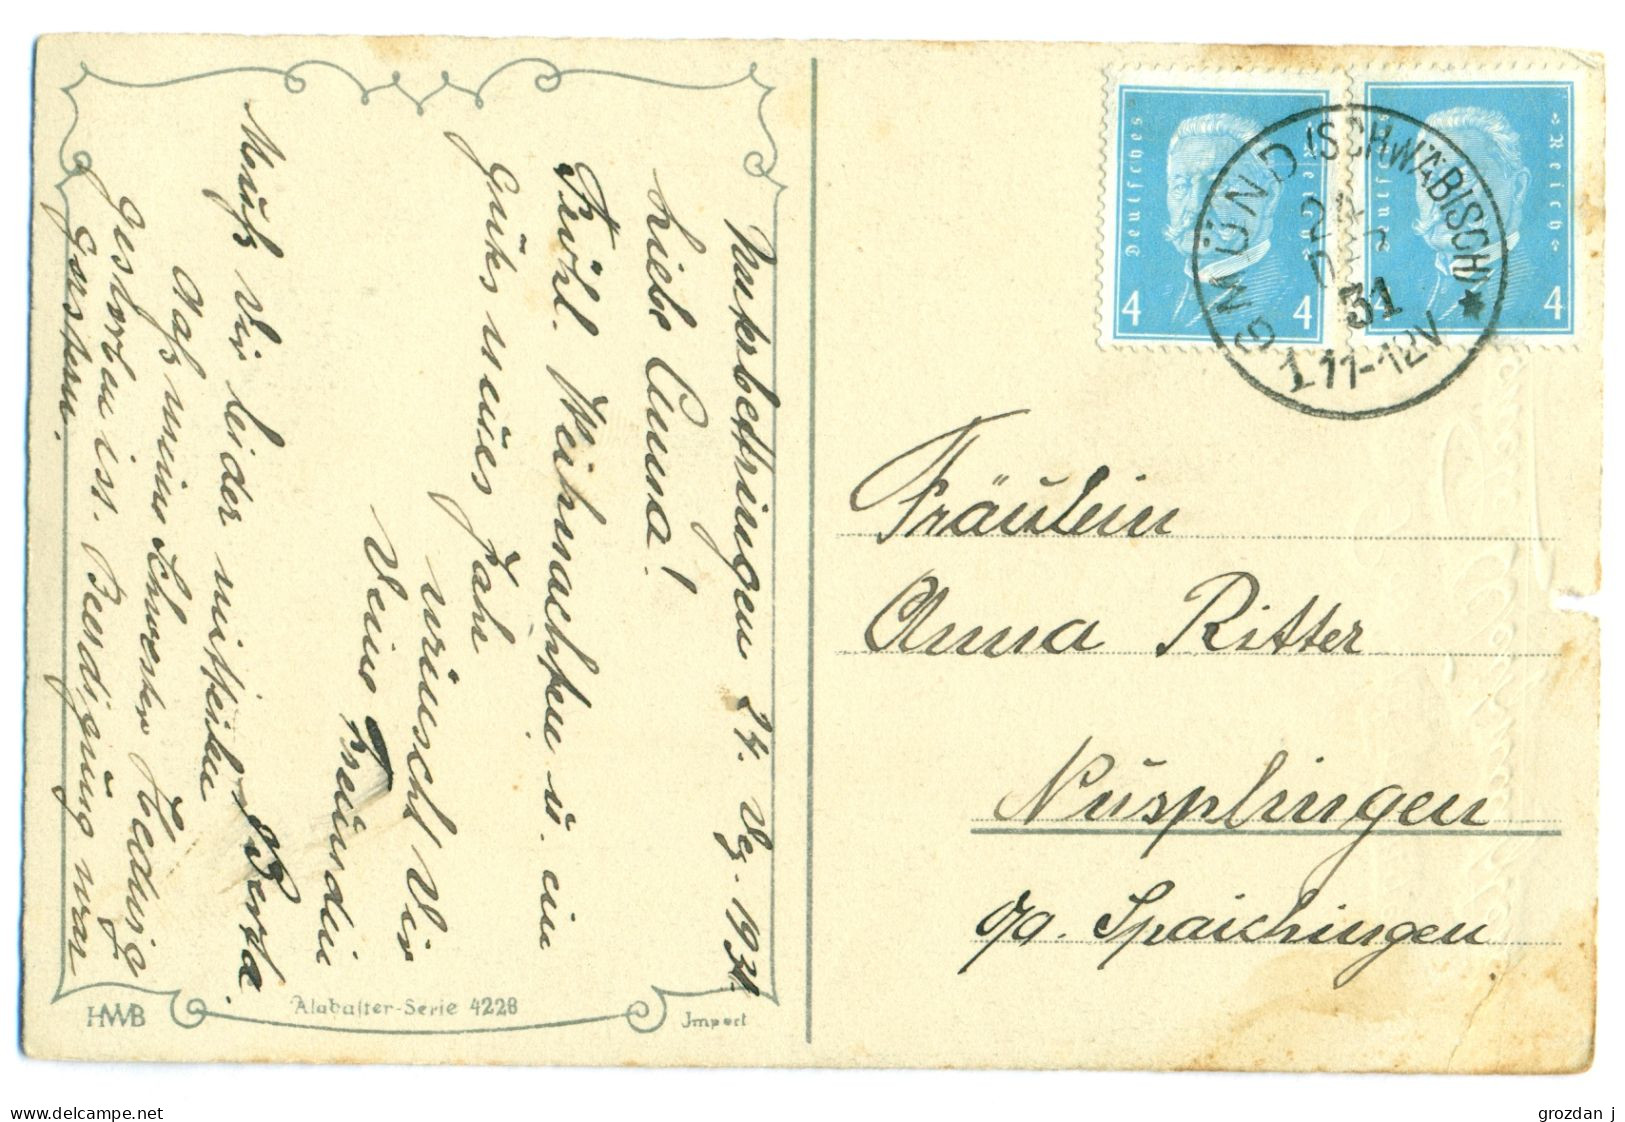 Unterbettringen 24. Dez. 1931.
Liebe Anna!
Fröhl. Weihnachten u. ein
gutes neues Jahr
wünscht Dir
Deine Freundin
Berta.
Muß Dir leider mitteilen
daß meine Schwester Hedwig
gestorben ist. Beerdigung war
gestern.
HWB
Alabaster-Serie 4228
Import
Deutsches Reich
4 4
Deutsches Reich
4 4
GMÜND (SCHWÄBISCH) ★
24
DEZ
31
1 11-12V
Fräulein
Anna Ritter
Nusplingen
o/a. Spaichingen
delcampe.net
grozdan j